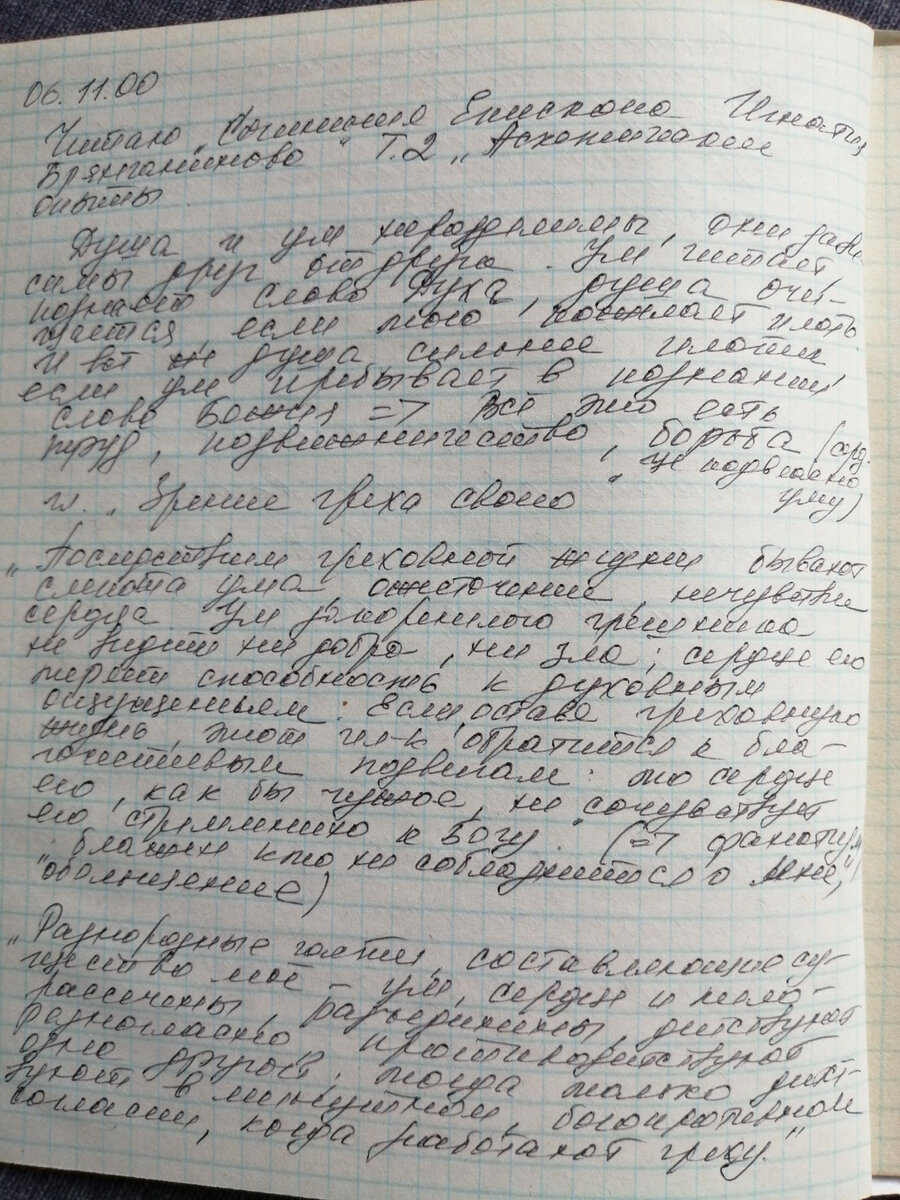 06.11.00
Читаю "Сочинения Епископа Игнатия
Брянчанинова" Т.2 "Аскетические
опыты
Душа и ум нераздел​имы, они зави-
симы друг от друга. Ум читает,
познает слово Духа, душа очи-
щается, если того пожелает плоть
И всё же душа сильнее плоти
если ум пребывает в познании
слова Божия => Всё это есть
труд, подвижничество, борьба (серд-
це подвластно
уму)
гл. "Зрение греха своего"
"Последствием греховной жизни бывают
слепота ума, ожесточение, нечувствие
сердца. Ум закоренелого грешника
не видит ни добра, ни зла; сердце его
теряет способность к духовным
ощущениям. Если, оставя греховную
жизнь, этот чел-к обратится к бла-
гочестивым подвигам: то сердце
его, как бы чужое, не сочувствует
его стремлению к Богу." (=> фанатизм,
"блажен кто не соблазнится о Мне",
"обольщение)
"Разнородные части, составляющие су-
щество моё – ум, сердце и тело –
рассечены, разъединены, действуют
разногласно, противодействуют
одно другой; тогда только дейст-
вуют в минутном, богопротивном
согласии, когда работают греху."